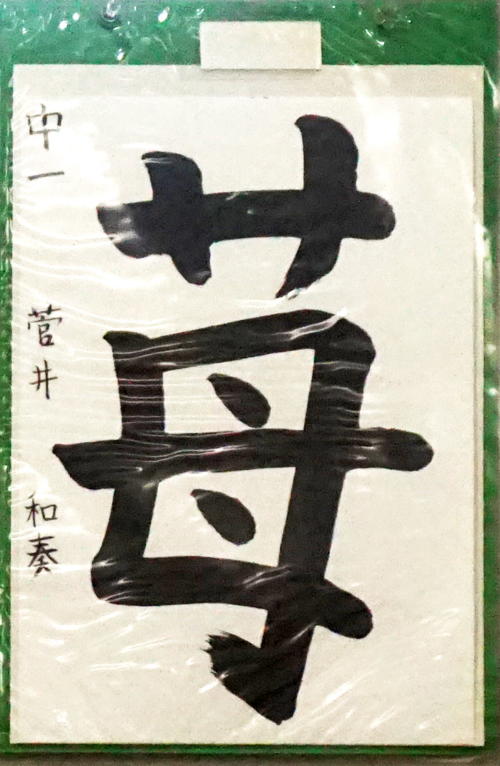 苺
中一 菅井 和奏